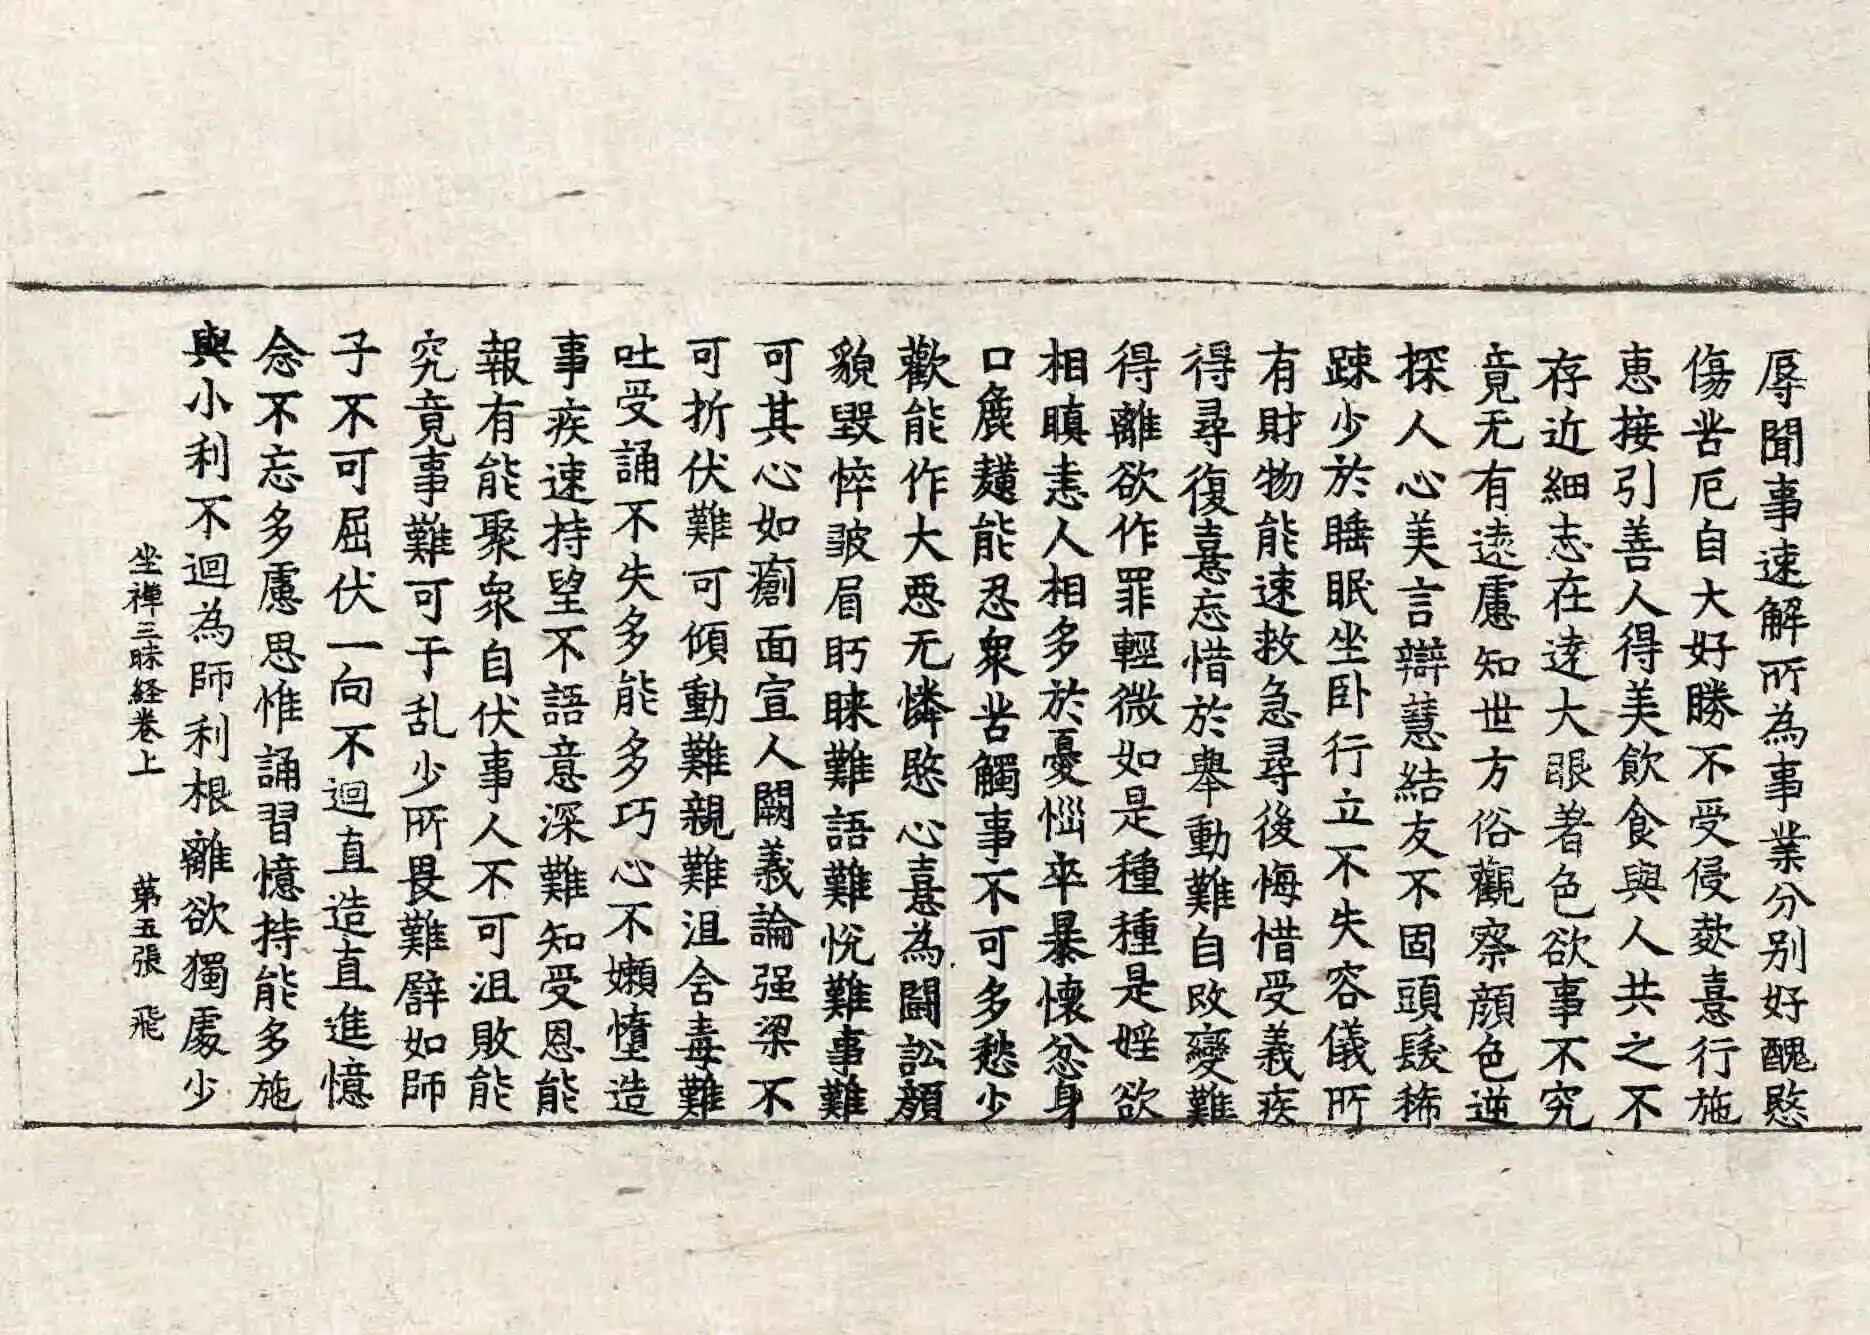 辱聞事速解所為事業分別好醜愍
傷苦厄自大好勝不受侵欺憙行施
恵接引善人得美飲食與人共之不
存近細志在遠大眼著色欲事不究
竟无有遠慮知世方俗觀察顔色逆
探人心美言辯慧結友不固頭髮稀
踈少於睡眠坐卧行立不失容儀所
有財物能速救急尋後悔惜受義疾
得尋復憙忘惜於舉動難自改變難
得離欲作罪輕微如是種種是婬欲
相瞋恚人相多於憂惱卒暴懷忿身
口麁獷能忍衆苦觸事不可多愁少
歡能作大惡无憐愍心憙為鬪訟顔
貌毀悴皺眉眄睞難語難悅難事難
可其心如瘡面宣人闕義論强梁不
可折伏難可傾動難親難沮含毒難
吐受誦不失多能多巧心不嬾墮造
事疾速持望不語意深難知受恩能
報有能聚衆自伏事人不可沮敗能
究竟事難可干乱少所畏難譬如師
子不可屈伏一向不迴直造直進憶
念不忘多慮思惟誦習憶持能多施
與小利不迴為師利根離欲獨處少
坐禪三昧経卷上 苐五張 飛